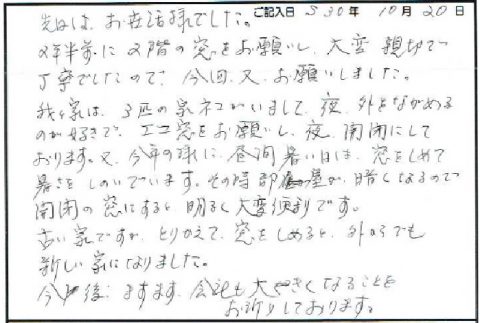 ご記入日 S30年 10月 20日
先日は、お世話様でした。
2年半前に2階の窓をお願いし、大変親切で
丁寧でしたので、今回、又、お願いしました。
我が家は、3匹の家ネコがいまして、夜、外をながめる
のが好きで、エコ窓をお願いし、夜、開閉にして
おります。又、今年の様に、昼間暑い日は、窓をしめて
暑さをしのいでいます。その時部屋が、暗くなるので
開閉の窓にすると、明るく大変便利です。
古い家ですが、とりかえて、窓をしめると、外からでも
新しい家になりました。
今後、ますます、会社も大きくなることを
お祈りしております。